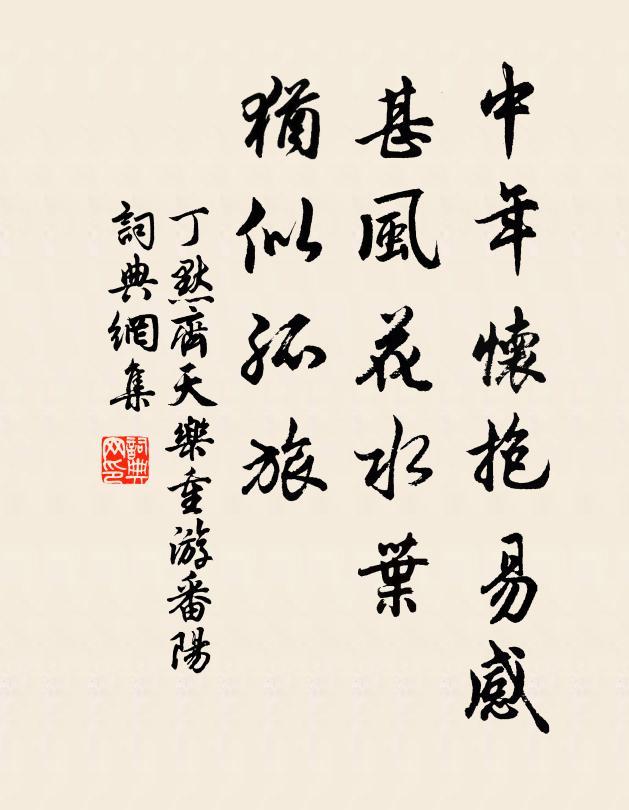 中年懷抱易感
甚風花水葉
猶似孤旅
丁默齊天樂重游番陽
詞典網集
詞典
网印